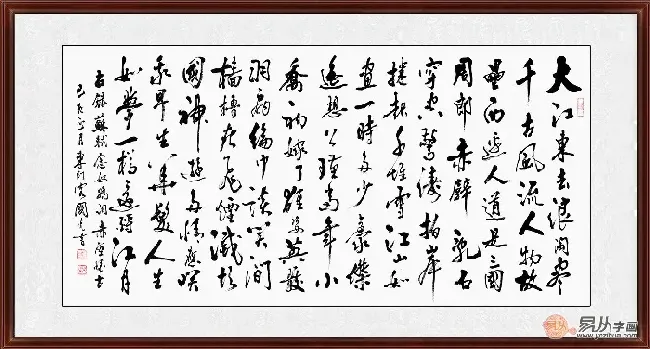 大江東去浪淘盡
千古風流人物故
壘西邊人道是三國
周郎赤壁亂石
穿空驚濤拍岸
捲起千堆雪江山如
畫一時多少豪傑
遙想公瑾當年小
喬初嫁了雄姿英發
羽扇綸巾談笑間
檣櫓灰飛煙滅故
國神遊多情應笑
我早生華髮人生
如夢一樽還酹江月
右錄蘇軾念奴嬌詞赤壁懷古
月 國 書
易从字画